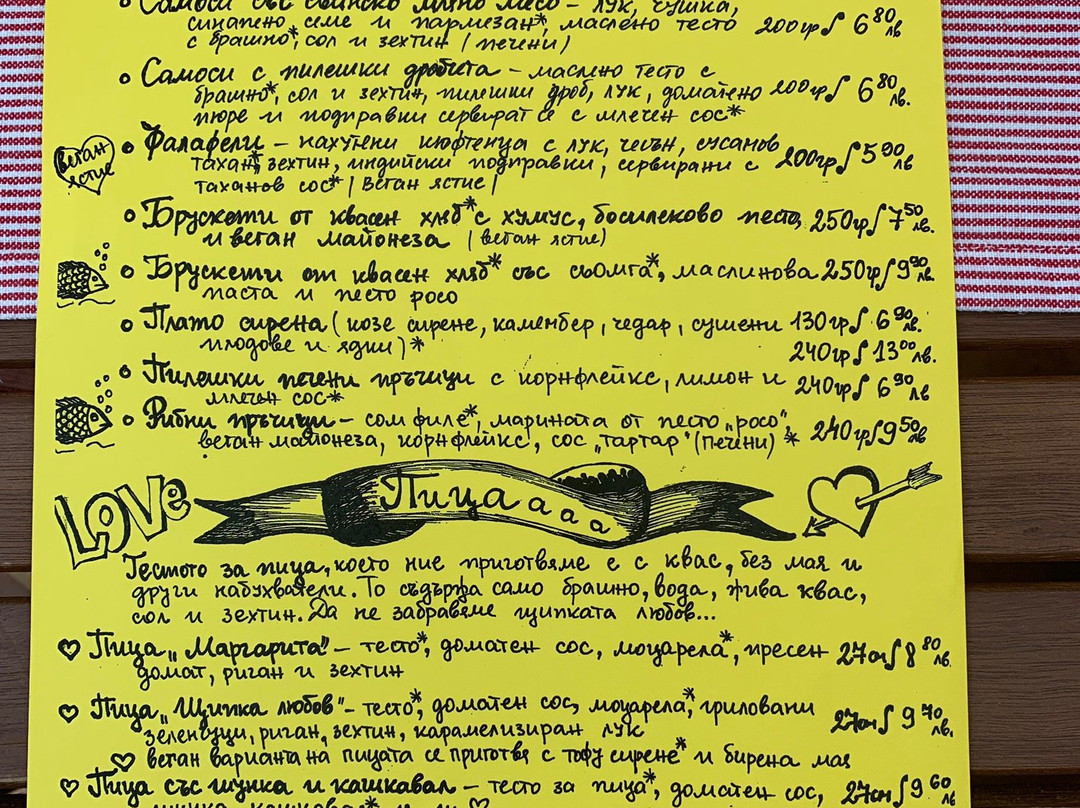 Самоси със свинско мляно месо – лук, чушка,
синапено семе и пармезан*, маслено тесто 200гр/ 6 80 лв
с брашно*, сол и зехтин /печени/
Самоси с пилешки дробчета – маслено тесто с
брашно*, сол и зехтин, пилешки дроб, лук, доматено 200гр/ 6 80 лв.
пюре и подправки сервират се с млечен сос*
Веган ястие
Фалафели – нахутени кюфтенца с лук, чесън, сусамов
тахан*, зехтин, индийски подправки, сервирани с 200гр/ 5 90 лв
таханов сос* /Веган ястие/
Брускети от квасен хляб* с хумус, босилеково песто, 250гр/ 7 50 лв.
и веган майонеза /веган ястие/
Брускети от квасен хляб* със сьомга*, маслинова 250гр/ 9 90 лв.
паста и песто росо
Плато сирена (козе сирене, камембер, чедар, сушени 130гр/ 6 90 лв.
плодове и ядки)* 240гр/ 13 00 лв.
Пилешки печени пръчици с корнфлейкс, лимон и 240гр/ 6 90 лв
млечен сос*
Рибни пръчици – сом филе*, марината от песто „росо", 240гр/ 9 50 лв
веган майонеза, корнфлейкс, сос „тартар" (печени) *
LOVe
Пицаааа
Тестото за пица, което ние приготвяме е с квас, без мая и
други набухватели. То съдържа само брашно, вода, жива квас,
сол и зехтин. Да не забравяме щипката любов...
Пица „Маргарита" – тесто*, доматен сос, моцарела*, пресен 27см/ 8 80 лв.
домат, риган и зехтин
Пица „Щипка любов" – тесто*, доматен сос, моцарела*, гриловани 27см/ 9 70 лв.
зеленчуци, риган, зехтин, карамелизиран лук
веган варианта на пицата се приготвя с тофу сирене* и бирена мая
Пица със шунка и кашкавал – тесто за пица*, доматен сос, 27см/ 9 60 лв
шунка, кашкавал*